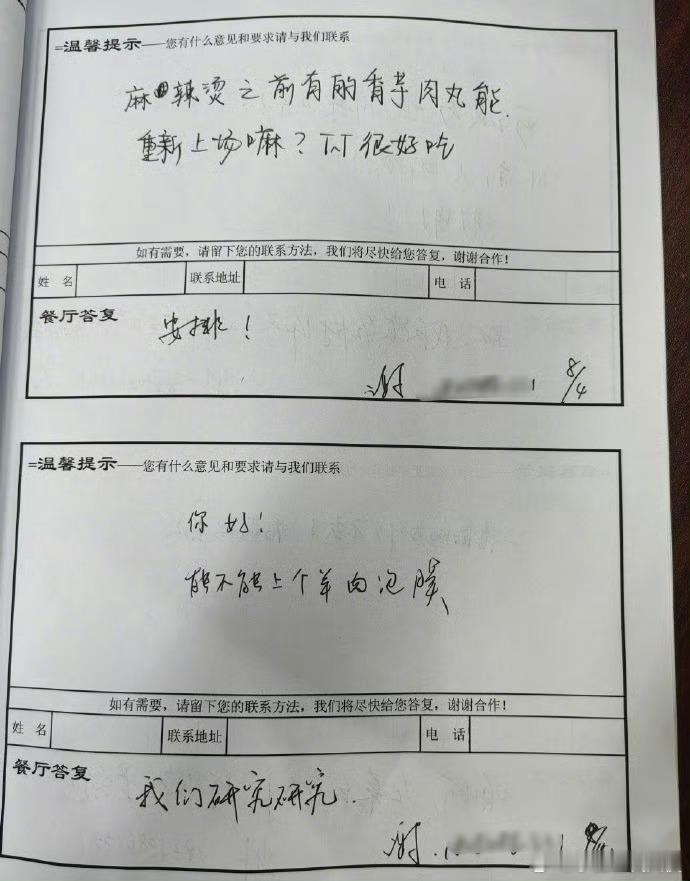 =温馨提示——您有什么意见和要求请与我们联系
麻辣烫之前有的香芋肉丸能
重新上场嘛？T-T 很好吃
如有需要，请留下您的联系方法，我们将尽快给您答复，谢谢合作！
姓 名 联系地址 电 话
餐厅答复
安排！
谢 8/4
=温馨提示——您有什么意见和要求请与我们联系
你好！
能不能上个羊肉泡膜
如有需要，请留下您的联系方法，我们将尽快给您答复，谢谢合作！
姓 名 联系地址 电 话
餐厅答复
我们研究研究.
谢